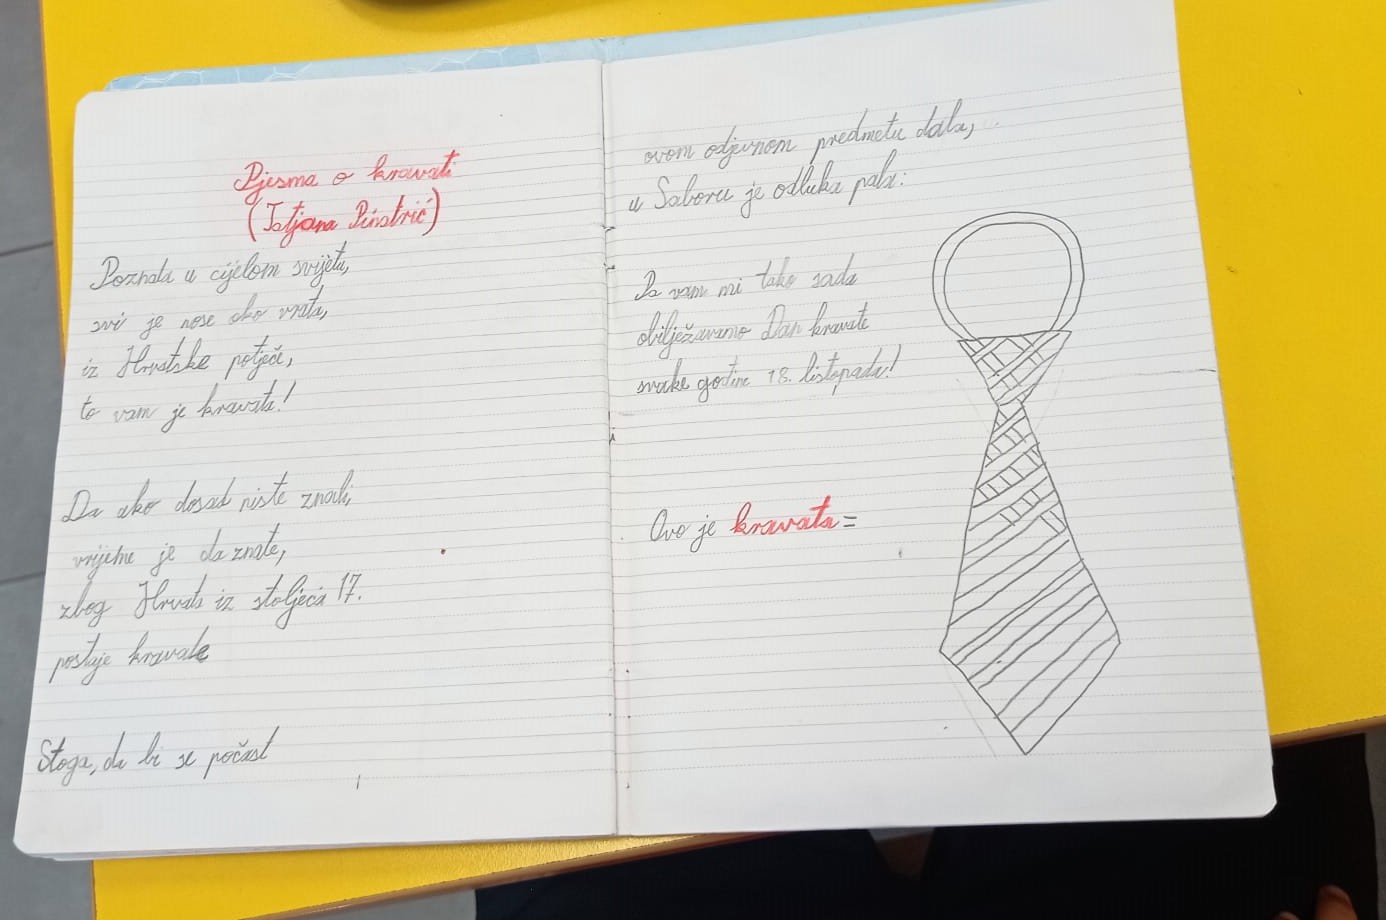 Pjesma o kravati
(Tatjana Pinstrić)
Poznata u cijelom svijetu,
svi je nose oko vrata,
iz Hrvatske potječe,
to vam je kravata!
Da ako dosad niste znali,
vrijeme je da znate,
zbog Hrvata iz stoljeća 17.
postaje kravate
Stoga, da bi se počast
ovom odjevnom predmetu dala,
u Saboru je odluka pala:
Da vam mi tako sada
obilježavamo Dan kravate
svake godine 18. listopada!
Ovo je kravata=